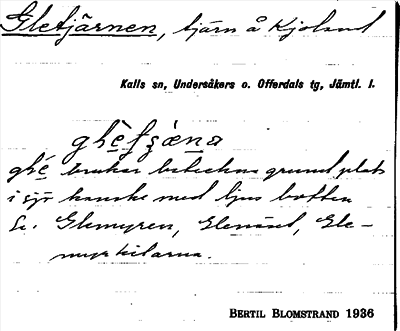 Gletjärnen, tjärn å Kjoland
Kalls sn, Undersåkers o. Offerdals tg, Jämtl. l.
ghé brukar beteckna grund plats
i sjö kanske med ljus botten
Glemyren, Glenäset, Gle-
myrkilarna.
BERTIL BLOMSTRAND 1936